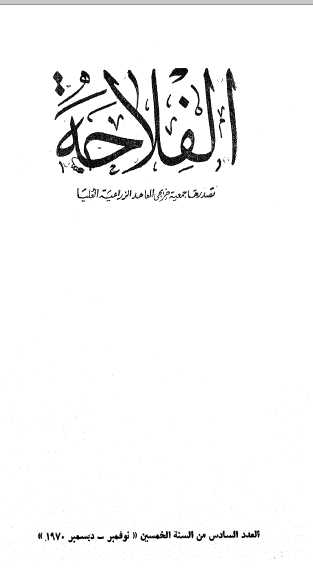 الفلاحة
تصدرها جمعية خريجى المعاهد الزراعية العليا
العدد السادس من السنة الخمسين « نوفمبر – ديسمبر ١٩٧٠ »